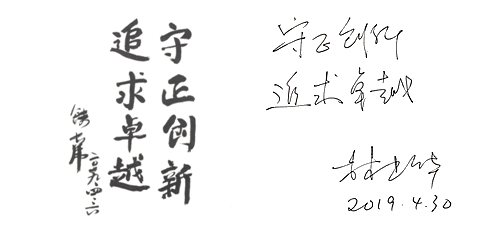 守正创新
追求卓越
二〇一九·四·六
守正创新
追求卓越
2019.4.30